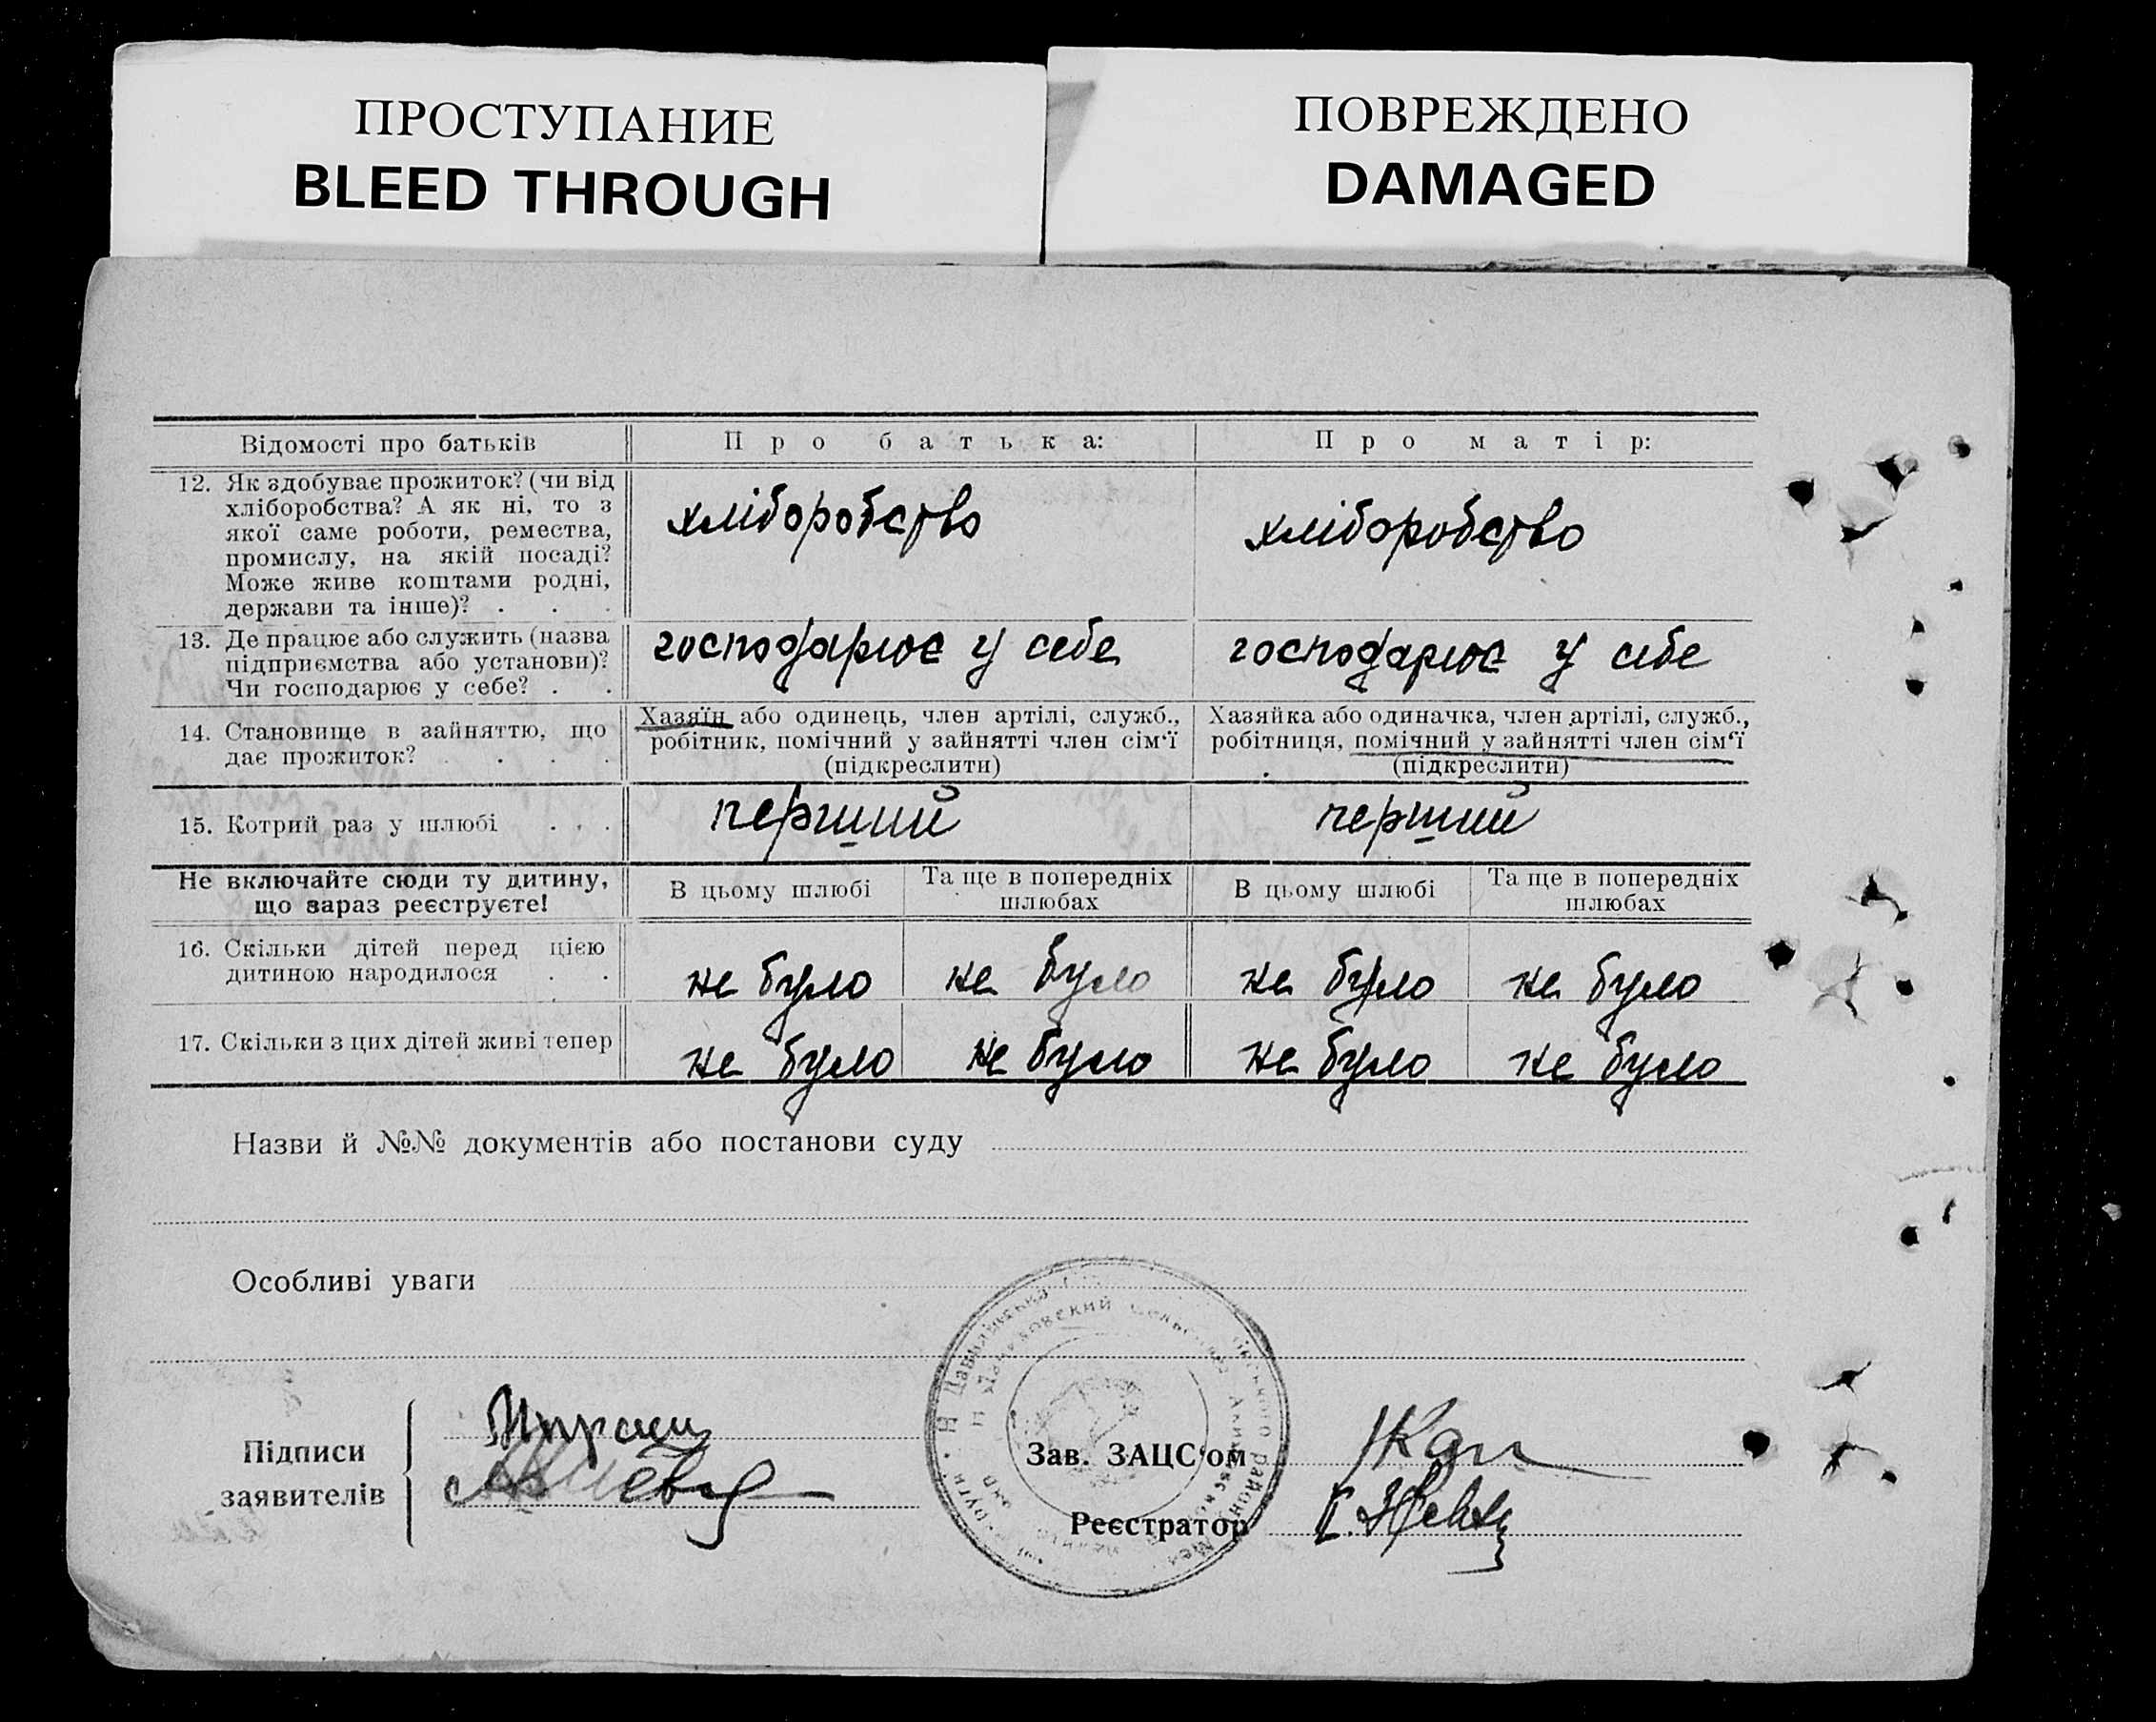 ПРОСТУПАНИЕ
BLEED THROUGH
ПОВРЕЖДЕНО
DAMAGED
Відомості про батьків
Про батька:
Про матір:
12. Як здобуває прожиток? (чи від
хліборобства? А як ні, то з
якої саме роботи, ремества,
промислу, на якій посаді?
Може живе коштами родні,
держави та інше)? . . .
хліборобство
хліборобство
13. Де працює або служить (назва
підприємства або установи)?
Чи господарює у себе? . .
господарює у себе
господарює у себе
14. Становище в зайняттю, що
дає прожиток? . . . .
Хазяїн або одинець, член артілі, служб.,
робітник, помічний у зайнятті член сім‘ї
(підкреслити)
Хазяйка або одиначка, член артілі, служб.,
робітниця, помічний у зайнятті член сім‘ї
(підкреслити)
15. Котрий раз у шлюбі . . .
перший
перший
Не включайте сюди ту дитину,
що зараз реєструєте!
В цьому шлюбі
Та ще в попередніх
шлюбах
В цьому шлюбі
Та ще в попередніх
шлюбах
16. Скільки дітей перед цією
дитиною народилося . .
не було
не було
не було
не було
17. Скільки з цих дітей живі тепер
не було
не було
не було
не було
Назви й №№ документів або постанови суду
Особливі уваги
Підписи
заявителів
Зав. ЗАЦС‘ом
Реєстратор
району